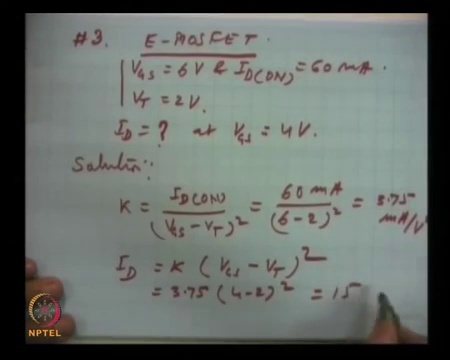 #3. E-MOSFET.
V_GS = 6V & I_D(ON) = 60 mA.
V_T = 2V.
I_D = ? at V_GS = 4V.
Solution:
K = I_D(ON) / (V_GS - V_T)^2 = 60 mA / (6-2)^2 = 3.75 mA/V
I_D = K (V_GS - V_T)^2
= 3.75 (4-2)^2 = 15
NPTEL